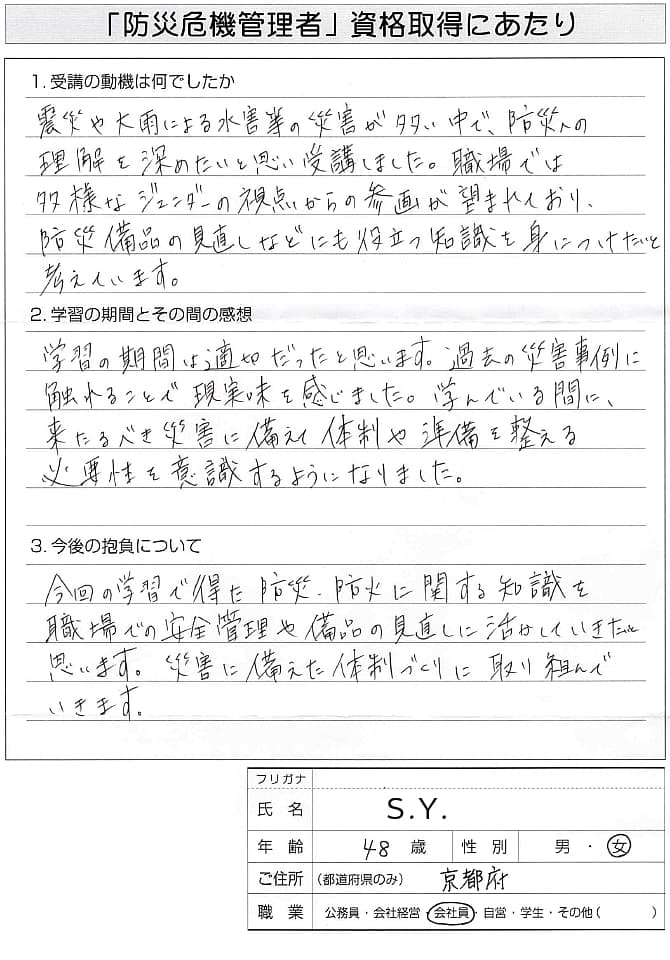 「防災危機管理者」資格取得にあたり
1. 受講の動機は何でしたか
震災や大雨による水害等の災害が多い中で、防災への
理解を深めたいと思い受講しました。職場では
多様なジェンダーの視点からの参画が望まれており、
防災備品の見直しなどにも役立つ知識を身につけたいと
考えています。
2. 学習の期間とその間の感想
学習の期間は適切だったと思います。過去の災害事例に
触れることで現実味を感じました。学んでいる間に、
来たるべき災害に備えて体制や準備を整える
必要性を意識するようになりました。
3. 今後の抱負について
今回の学習で得た防災・防火に関する知識を
職場での安全管理や備品の見直しに活かしていきたいと
思います。災害に備えた体制づくりに取り組んで
いきます。
フリガナ
氏名 S.Y.
年齢 48 歳 性別 男・女
ご住所 (都道府県のみ) 京都府
職業 公務員・会社経営・会社員・自営・学生・その他( )